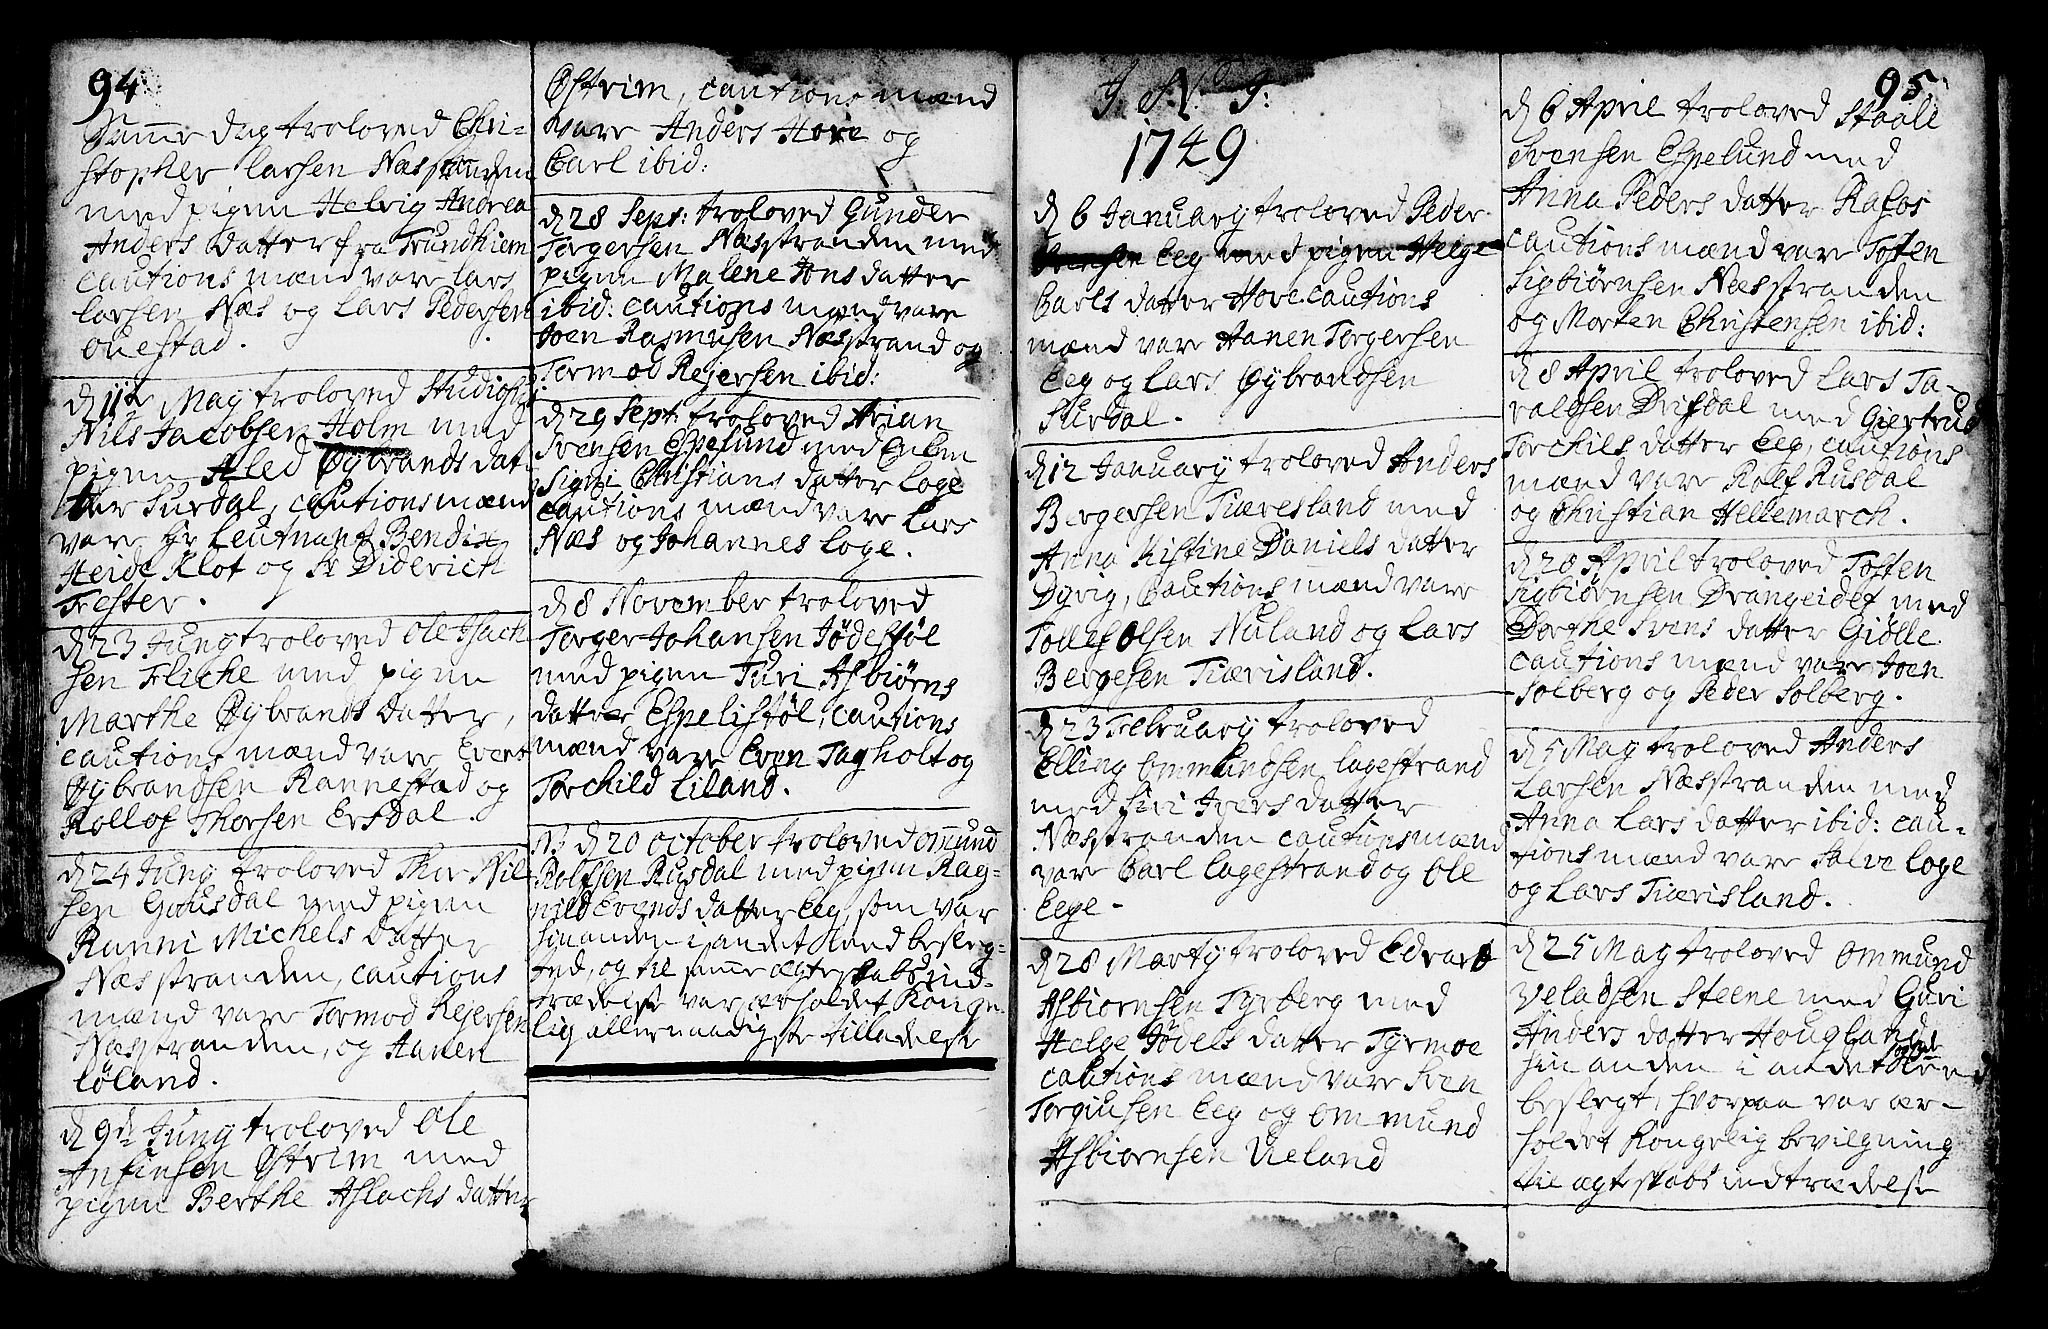 94
Samme dag troloved Chri-
stopher Larsen Næsstranden
med pigen Helvig Andrea
Anders datter fra Trundhiem
cautions mænd vare Lars
Larsen Næs og Lars Pedersen
ouestad.
d 11te May troloved Studiosus
Nils Jacobsen Holm med
pigen Aled Øÿbrands dat-
ter Surdal, cautions mænd
vare Hr Leutnant Bendix
Heide Klot og Sr Diderich
Trester.
d 23 Juny troloved Ole Isach
sen Fliche med pigen
Marthe Øÿbrands Datter,
cautions mænd vare Evert
Øÿbrandsen Rannestad og
Rollof Thorsen Ersdal.
d 24 Juny troloved Thor Nil-
sen Gousdal med pigen
Ranni Michels Datter
Næsstranden, cautions
mænd vare Tormod Rejersen
Næsstranden, og Hanen
Löland.
d 9de Juny troloved Ole
Anfinsen Østrim med
pigen Berthe Aslachs datter
Østrim, cautions mænd
vare Anders Hove og
Carl ibid:
d 28 Sept: troloved Gunder
Torgersen Næsstranden med
pigen Malene Jons datter
ibid: cautions mænd vare
Joen Rasmusen Næsstrand og
Tormod Rejersen ibid:
d 29 Sept: troloved Arian
Svensen Espelund med Enken
Signi Christians datter Loge
cautions mænd vare Lars
Næs og Johannes Loge.
d 8 November troloved
Torger Johansen Jödestöl
med pigen Turi Asbiørns
datter Espelistöl, cautions
mænd vare Even Tagholt og
Torchild Liland.
NB d 20 october troloved Ommund
Rolfsen Rusdal med pigen Rag-
nild Evends datter Eeg, som var
hinanden i andet Leed besleg-
tede, og til samme ægteskabs ind-
trædelse var ærholdet Konge-
lig allernaadigste tilladelse
J. N. J:
1749
d 6 January troloved Peder
Eeg med pigen Helge
Carls datter Hove. cautions
mænd vare Hanen Torgersen
Eeg og Lars Øÿbrandsen
Surdal.
d 12 January troloved Anders
Bergersen Tiæresland med
Anna Kistine Daniels datter
Dyvig, Cautions mænd vare
Tollef Olsen Nuland og Lars
Bergesen Tiærisland.
d 23 Februarÿ troloved
Elling Ommundsen Lagestrand
med Siri Ivers datter
Næsstranden cautions mænd
vare Carl Lagestrand og Ole
Eege.
d 28 Marty troloved Edvard
Asbiornsen Tyrberg med
Helge Jödels datter Tyrmoe
cautions mænd vare Sven
Torgiusen Eeg og Ommund
Asbiornsen Ueland
95
d 6 April troloved Staale
Svensen Espelund med
Anna Peders datter Rafos
cautions mænd vare Tosten
Sigbiørnsen Næsstranden
og Morten Christensen ibid:
d 8 April troloved Lars Ta-
raldsen Drifdal med Giertrud
Torchils datter Eeg, cautions
mænd vare Rolf Rusdal
og Christian Hellemarch.
d 20 April troloved Tosten
Sigbiørnsen Drangeidet med
Dorthe Svens datter Giølle
cautions mænd vare Joen
Solberg og Peder Solberg.
d 5 May troloved Anders
Larsen Næsstranden med
Anna Lars datter ibid: cau-
tions mænd vare Salve Loge
og Lars Tiærisland.
d 25 May troloved Ommund
Veladsen Steene med Guri
Anders datter Hougland
hinanden i andet Leed
beslegt, hvorpaa var ær-
holdet Kongelig bevilgning
til ægteskabs indtrædelse